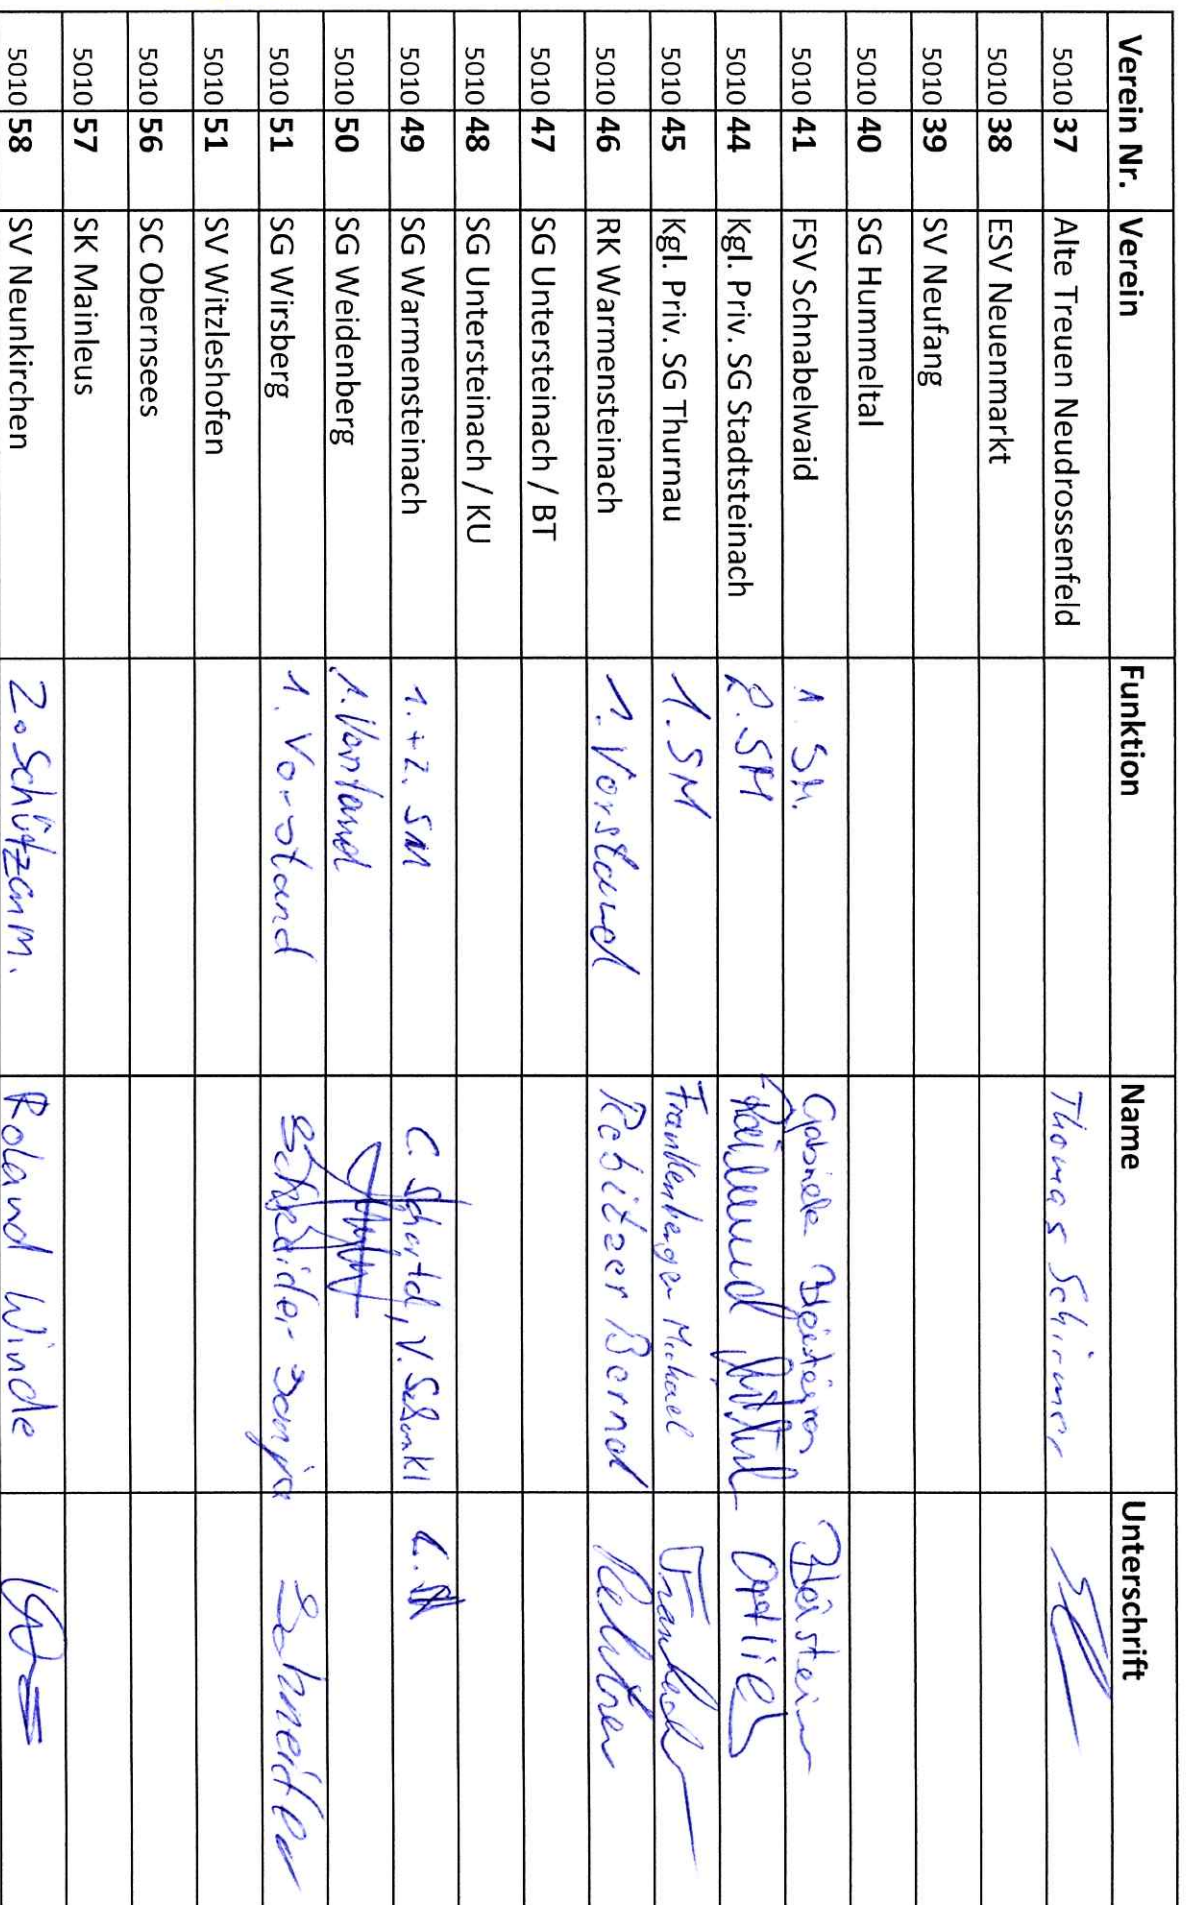 Verein Nr. Verein Funktion Name Unterschrift
5010 37 Alte Treuen Neudrossenfeld Thomas Schirmer
5010 38 ESV Neuenmarkt
5010 39 SV Neufang
5010 40 SG Hummeltal
5010 41 FSV Schnabelwaid 1. SM. Gabriele
5010 44 Kgl. Priv. SG Stadtsteinach 2. SM
5010 45 Kgl. Priv. SG Thurnau 1. SM Frankenberger Michael
5010 46 RK Warmensteinach 1. Vorstand Rebitzer Bernd
5010 47 SG Untersteinach / BT
5010 48 SG Untersteinach / KU
5010 49 SG Warmensteinach 1. + 2. SM C. V.
5010 50 SG Weidenberg 1. Vorstand
5010 51 SG Wirsberg 1. Vorstand Schneider Sonja Schneider
5010 51 SV Witzleshofen
5010 56 SC Obernsees
5010 57 SK Mainleus
5010 58 SV Neunkirchen 2. Schützenm. Roland Winde